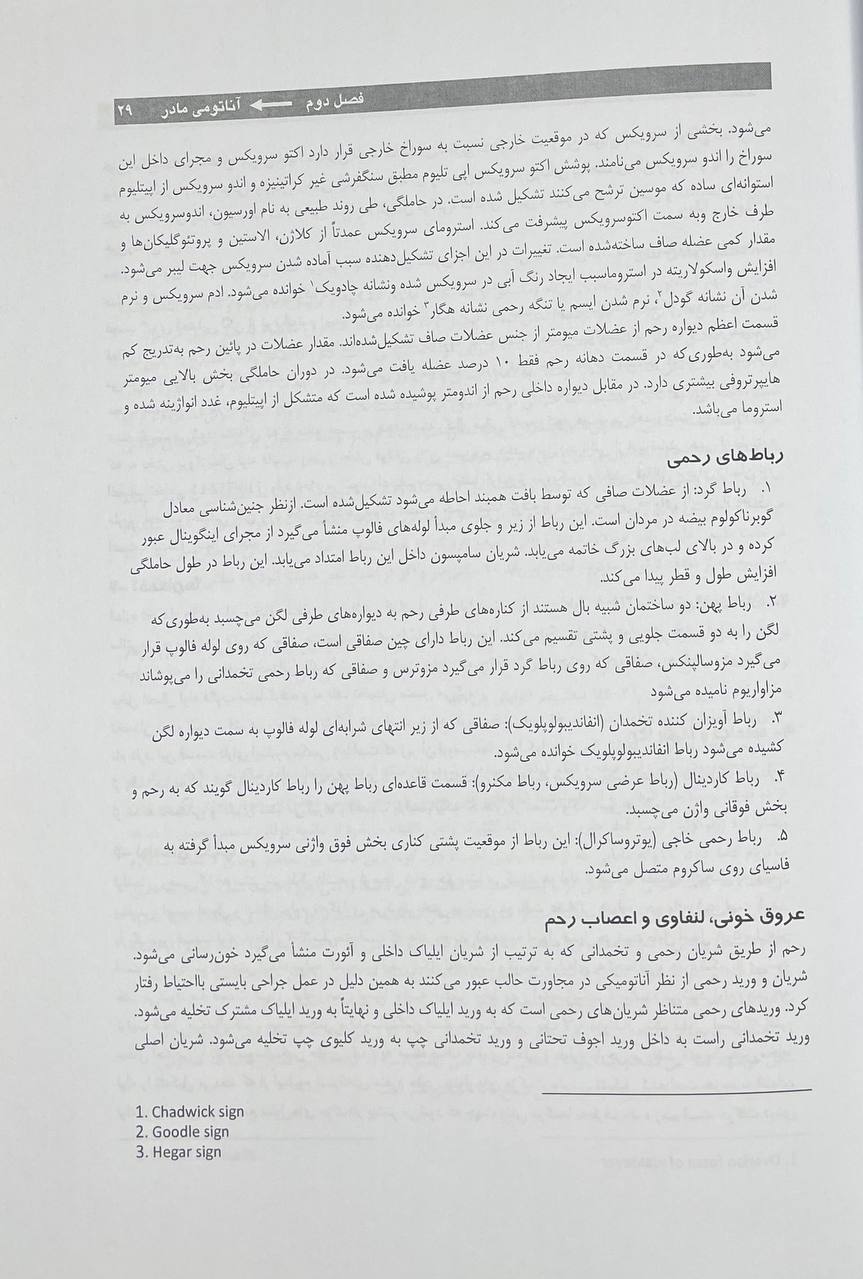 فصل دوم ← آناتومی مادر ۲۹
می‌شود. بخشی از سرویکس که در موقعیت خارجی نسبت به سوراخ خارجی قرار دارد اکتو سرویکس و مجرای داخل این
سوراخ را اندو سرویکس می‌نامند. پوشش اکتو سرویکس اپی تلیوم مطبق سنگفرشی غیر کراتینیزه و اندو سرویکس از اپیتلیوم
استوانه‌ای ساده که موسین ترشح می‌کنند تشکیل شده است. در حاملگی، طی روند طبیعی به نام اورسیون، اندوسرویکس به
طرف خارج وبه سمت اکتوسرویکس پیشرفت می‌کند. استرومای سرویکس عمدتاً از کلاژن، الاستین و پروتئوگلیکان‌ها و
مقدار کمی عضله صاف ساخته‌شده است. تغییرات در این اجزای تشکیل‌دهنده سبب آماده شدن سرویکس جهت لیبر می‌شود.
افزایش واسکولاریته در استروماسبب ایجاد رنگ آبی در سرویکس شده ونشانه چادویک۱ خوانده می‌شود. ادم سرویکس و نرم
شدن آن نشانه گودل۲، نرم شدن ایسم یا تنگه رحمی نشانه هگار۳ خوانده می‌شود.
قسمت اعظم دیواره رحم از عضلات میومتر از جنس عضلات صاف تشکیل‌شده‌اند. مقدار عضلات در پائین رحم به‌تدریج کم
می‌شود به‌طوری‌که در قسمت دهانه رحم فقط ۱۰ درصد عضله یافت می‌شود. در دوران حاملگی بخش بالایی میومتر
هایپرتروفی بیشتری دارد. در مقابل دیواره داخلی رحم از اندومتر پوشیده شده است که متشکل از اپیتلیوم، غدد انواژینه شده و
استروما می‌باشد.
رباط‌های رحمی
۱. رباط گرد: از عضلات صافی که توسط بافت همبند احاطه می‌شود تشکیل‌شده است. ازنظر جنین‌شناسی معادل
گوبرناکولوم بیضه در مردان است. این رباط از زیر و جلوی مبدأ لوله‌های فالوپ منشأ می‌گیرد از مجرای اینگوینال عبور
کرده و در بالای لب‌های بزرگ خاتمه می‌یابد. شریان سامپسون داخل این رباط امتداد می‌یابد. این رباط در طول حاملگی
افزایش طول و قطر پیدا می‌کند.
۲. رباط پهن: دو ساختمان شبیه بال هستند از کناره‌های طرفی رحم به دیواره‌های طرفی لگن می‌چسبد به‌طوری‌که
لگن را به دو قسمت جلویی و پشتی تقسیم می‌کند. این رباط دارای چین صفاقی است، صفاقی که روی لوله فالوپ قرار
می‌گیرد مزوسالپنکس، صفاقی که روی رباط گرد قرار می‌گیرد مزوترس و صفاقی که رباط رحمی تخمدانی را می‌پوشاند
مزاواریوم نامیده می‌شود
۳. رباط آویزان کننده تخمدان (انفاندیبولوپلویک): صفاقی که از زیر انتهای شرابه‌ای لوله فالوپ به سمت دیواره لگن
کشیده می‌شود رباط انفاندیبولوپلویک خوانده می‌شود.
۴. رباط کاردینال (رباط عرضی سرویکس، رباط مکنرو): قسمت قاعده‌ای رباط پهن را رباط کاردینال گویند که به رحم و
بخش فوقانی واژن می‌چسبد.
۵. رباط رحمی خاجی (یوتروساکرال): این رباط از موقعیت پشتی کناری بخش فوق واژنی سرویکس مبدأ گرفته به
فاسیای روی ساکروم متصل می‌شود.
عروق خونی، لنفاوی و اعصاب رحم
رحم از طریق شریان رحمی و تخمدانی که به ترتیب از شریان ایلیاک داخلی و آئورت منشأ می‌گیرد خون‌رسانی می‌شود.
شریان و ورید رحمی از نظر آناتومیکی در مجاورت حالب عبور می‌کنند به همین دلیل در عمل جراحی بایستی بااحتیاط رفتار
کرد. وریدهای رحمی متناظر شریان‌های رحمی است که به ورید ایلیاک داخلی و نهایتاً به ورید ایلیاک مشترک تخلیه می‌شود.
ورید تخمدانی راست به داخل ورید اجوف تحتانی و ورید تخمدانی چپ به ورید کلیوی چپ تخلیه می‌شود. شریان اصلی
1. Chadwick sign
2. Goodle sign
3. Hegar sign